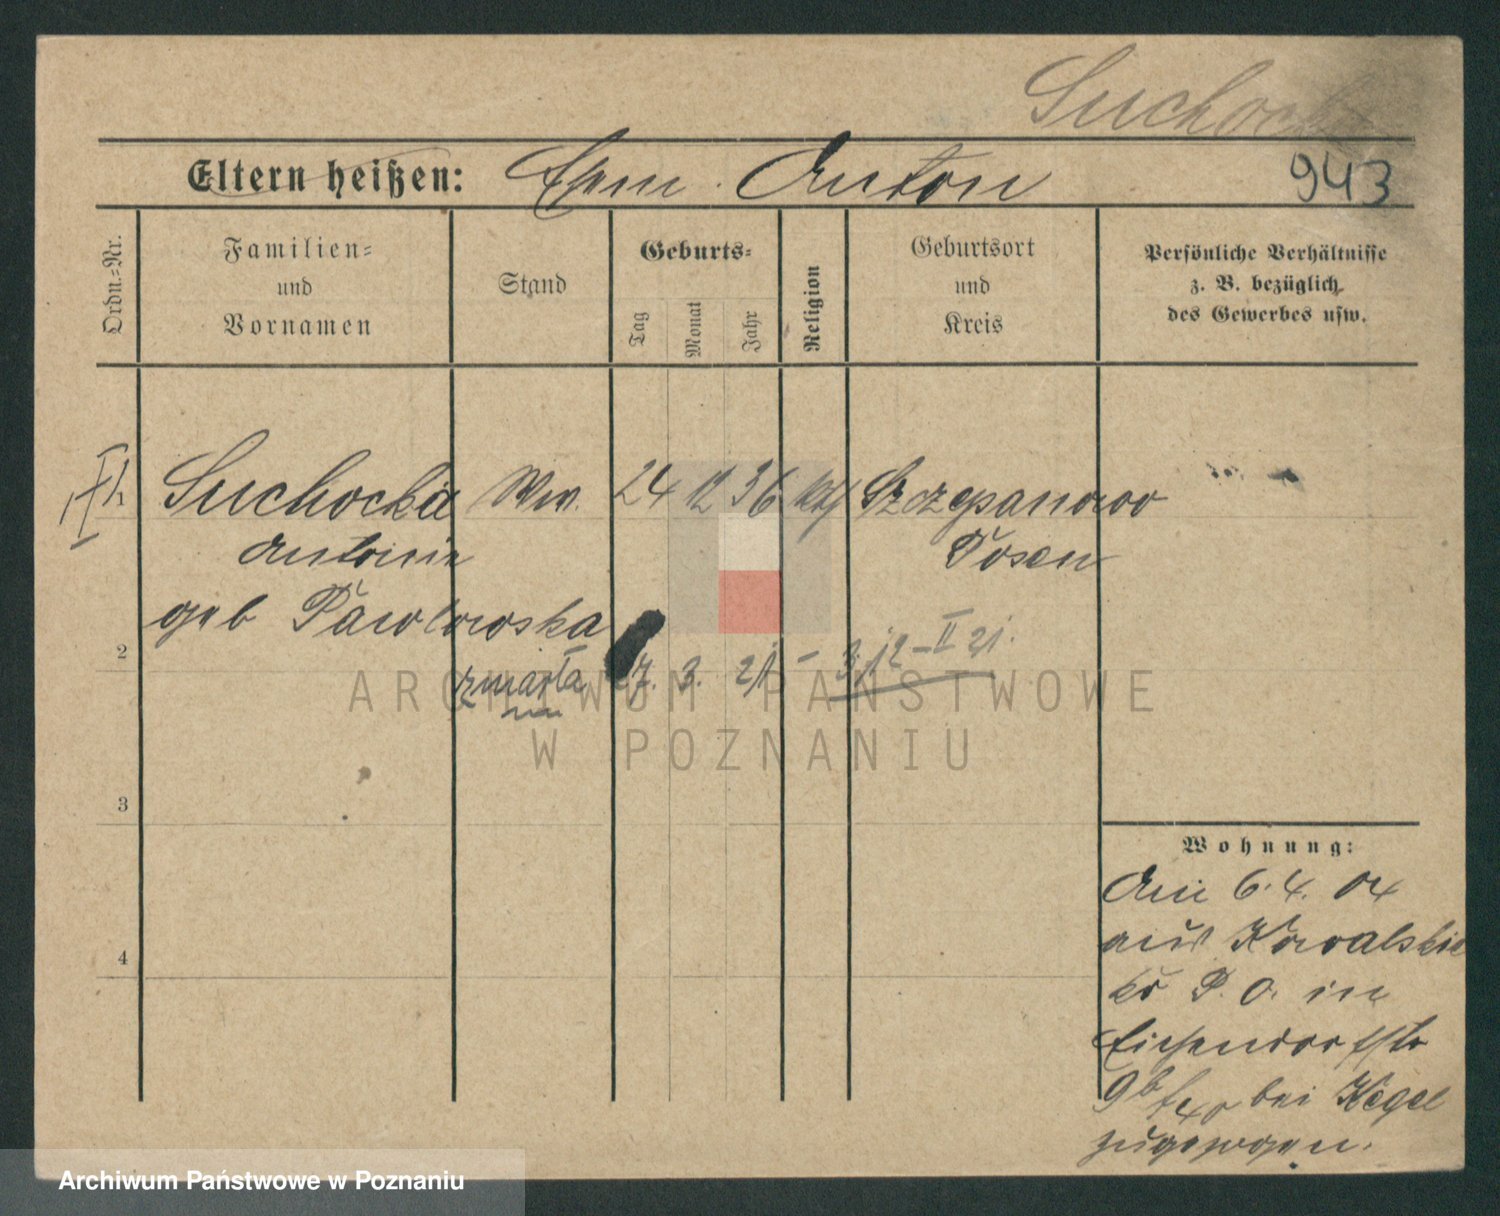 Suchocka
Eltern heißen: Anton
943
Ordn.-Nr.
Familien-
und
Vornamen
Stand
Geburts-
Tag
Monat
Jahr
Religion
Geburtsort
und
Kreis
Persönliche Verhältnisse
z. B. bezüglich
des Gewerbes usw.
Suchocka Ww. 24 12 36 kth Szczepanowo
Antonie Posen
geb Pawlowska
2
zmarła 7. 3. 21 – 3/12–II 21.
3
4
Wohnung:
Am 6.4.04
aus Kowalskie
Kr P. O. in
Eichendorffstr
9b bei Kegel
zugezogen.
ARCHIWUM PAŃSTWOWE
W POZNANIU
Archiwum Państwowe w Poznaniu